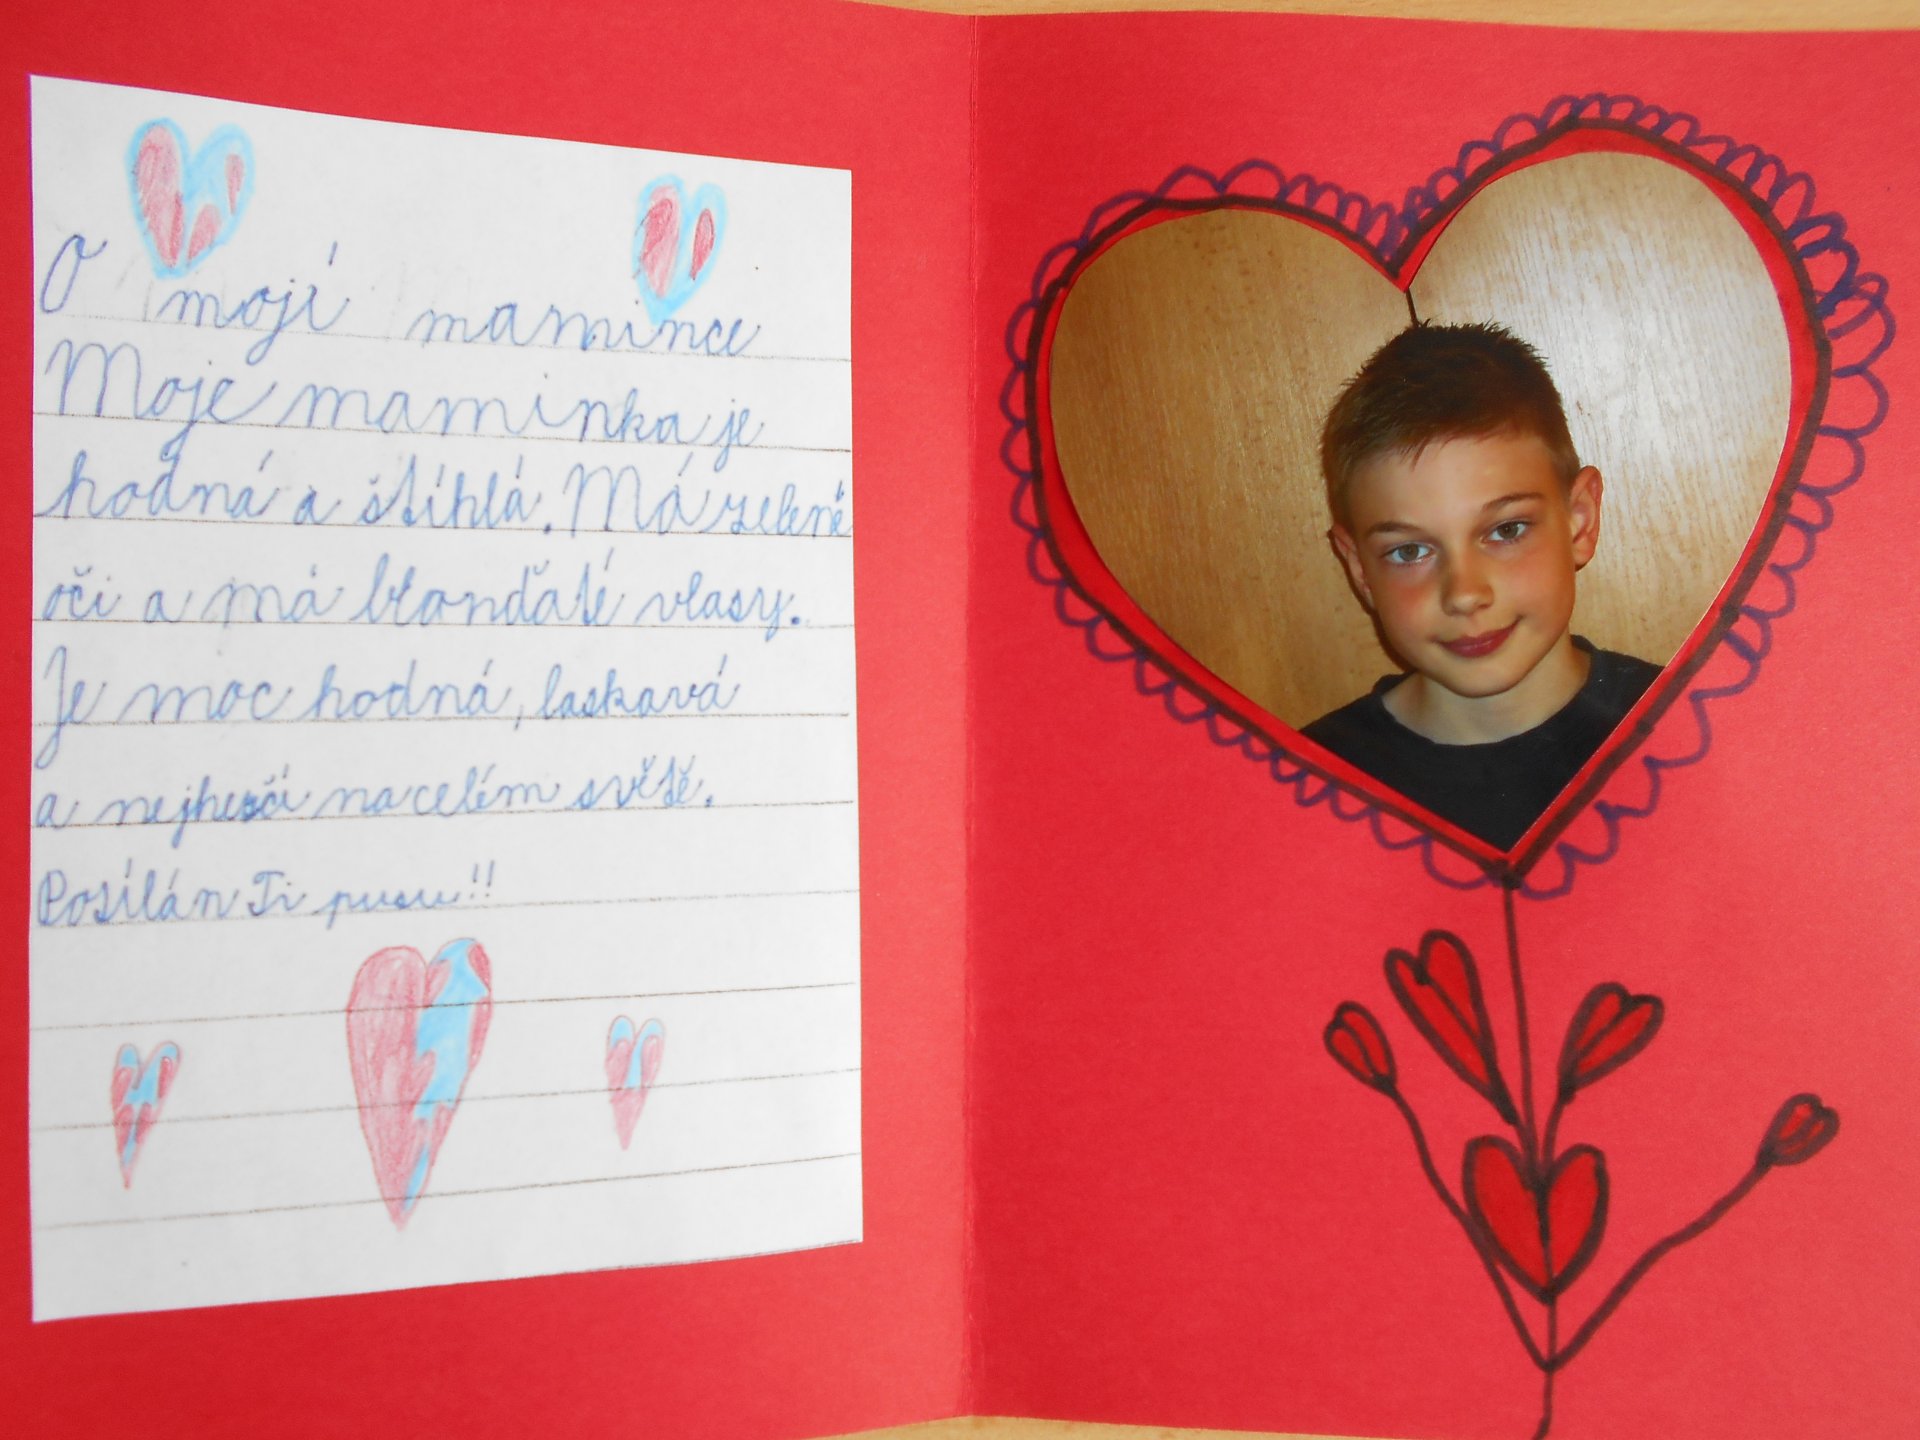 O mojí mamince
Moje maminka je
hodná a štíhlá. Má zelené
oči a má blonďaté vlasy.
Je moc hodná, laskavá
a nejhezčí na celém světě.
Posílán Ti pusu!!